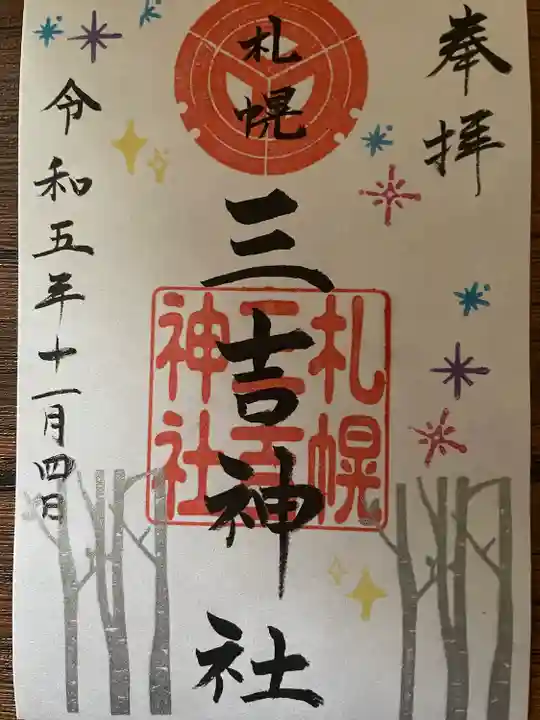 奉拝
札幌
三吉神社
札幌
三吉
神社
令和五年十一月四日